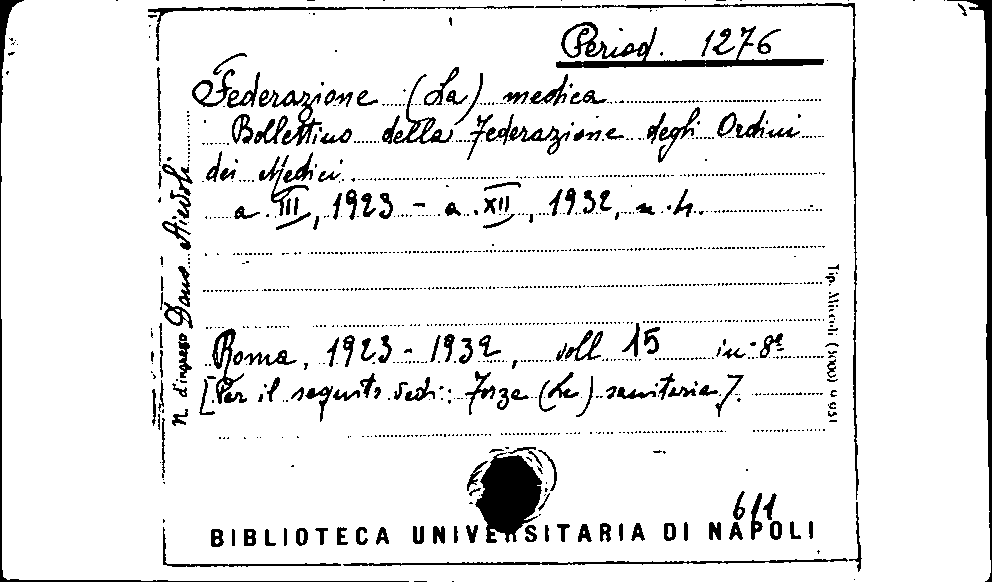 Period. 1276
Federazione (La) medica
Bollettino della Federazione degli Ordini
dei Medici.
a. III, 1923 - a. XII, 1932, n. 4.
Roma, 1923-1932, voll 15 in-8º
[Per il seguito vedi: Forza (La) sanitaria].
N. d'ingresso Dono Aievoli
611
BIBLIOTECA UNIVERSITARIA DI NAPOLI